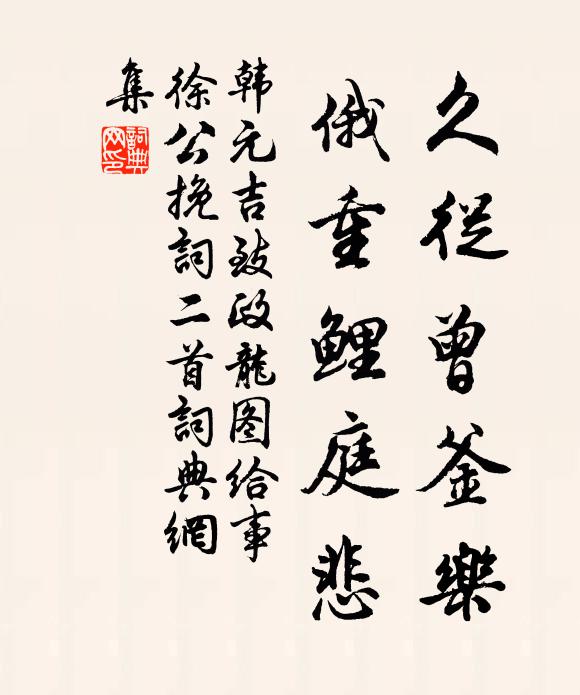 久從曾釜樂
俄重鯉庭悲
韩元吉致政龍图给事
徐公挽詞二首詞典網
集
詞典网印